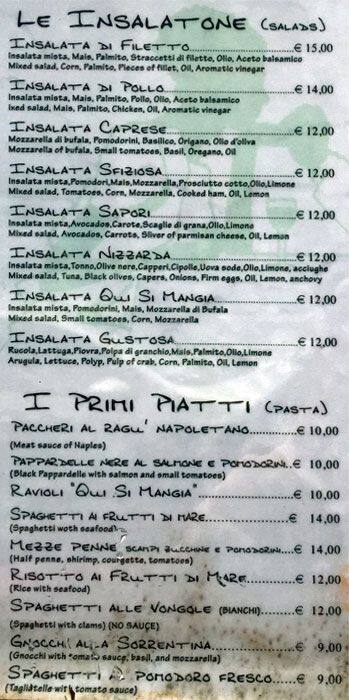 LE INSALATONE (SALADS)
INSALATA DI FILETTO...............€ 15,00
Insalata mista, Mais, Palmito, Straccetti di filetto, Olio, Aceto balsamico
Mixed salad, Corn, Palmito, Pieces of fillet, Oil, Aromatic vinegar
INSALATA DI POLLO...............€ 14,00
Insalata mista, Mais, Palmito, Pollo, Olio, Aceto balsamico
ixed salad, Mais, Palmito, Chicken, Oil, Aromatic vinegar
INSALATA CAPRESE...............€ 12,00
Mozzarella di bufala, Pomodorini, Basilico, Origano, Olio d'oliva
Mozzarella of bufala, Small tomatoes, Basil, Oregano, Oil
INSALATA SFIZIOSA...............€ 12,00
Insalata mista,Pomodori,Mais,Mozzarella,Prosciutto cotto,Olio,Limone
Mixed salad, Tomatoes, Corn, Mozzarella, Cooked ham, Oil, Lemon
INSALATA SAPORI...............€ 12,00
Insalata mista,Avocados,Carote,Scaglie di grana,Olio,Limone
Mixed salad, Avocados, Carrots, Sliver of parmisan cheese, Oil, Lemon
INSALATA NIZZARDA...............€ 12,00
Insalata mista,Tonno,Olive nere,Capperi,Cipolle,Uova sode,Olio,Limone, acciughe
Mixed salad, Tuna, Black olives, Capers, Onions, Firm eggs, Oil, Lemon, anchovy
INSALATA QUI SI MANGIA...............€ 12,00
Insalata mista, Pomodorini, Mais, Mozzarella di Bufala
Mixed salad, Small tomatoes, Corn, Mozzarella
INSALATA GUSTOSA...............€ 12,00
Rucola,Lattuga,Piovra,Polpa di granchio,Mais,Palmito,Olio,Limone
Arugula, Lettuce, Polyp, Pulp of crab, Corn, Palmito, Oil, Lemon
I PRIMI PIATTI (PASTA)
PACCHERI AL RAGU' NAPOLETANO...........€ 10,00
(Meat sauce of Naples)
PAPPARDELLE NERE AL SALMONE E POMODORINI..€ 10,00
(Black Pappardelle with salmon and small tomatoes)
RAVIOLI "QUI SI MANGIA"...............€ 10,00
SPAGHETTI AI FRUTTI DI MARE...............€ 14,00
(Spaghetti woth seafood)
MEZZE PENNE SCAMPI ZUCCHINE E POMODORINI....€ 14,00
(Half penne, shirimp, courgette, tomatoes)
RISOTTO AI FRUTTI DI MARE...............€ 12,00
(Rice with seafood)
SPAGHETTI ALLE VONGOLE (BIANCHI)...........€ 12,00
(Spaghetti with clams) (NO SAUCE)
GNOCCHI ALLA SORRENTINA...............€ 9,00
(Gnocchi with tomato sauce, basil, and mozzarella)
SPAGHETTI AL POMODORO FRESCO...........€ 9,00
(Tagliatelle with tomato sauce)